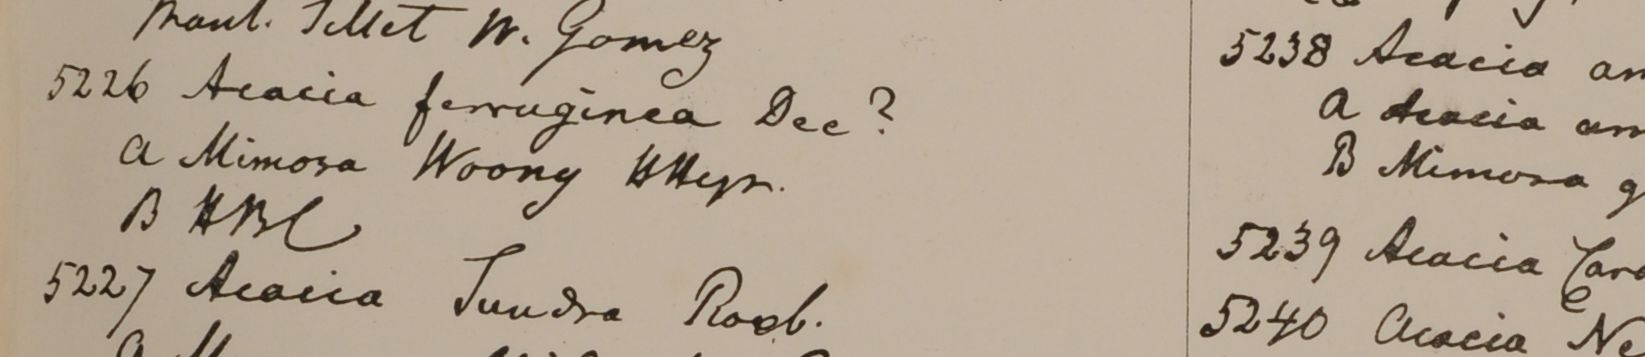 Maul. Tillet W. Gomez
5226 Acacia ferruginea Dec?
a Mimosa Woony HHeyn.
B HBC
5227 Acacia Sundra Roxb.
5238 Acacia
a Acacia
B Mimosa
5239 Acacia
5240 Acacia Ne